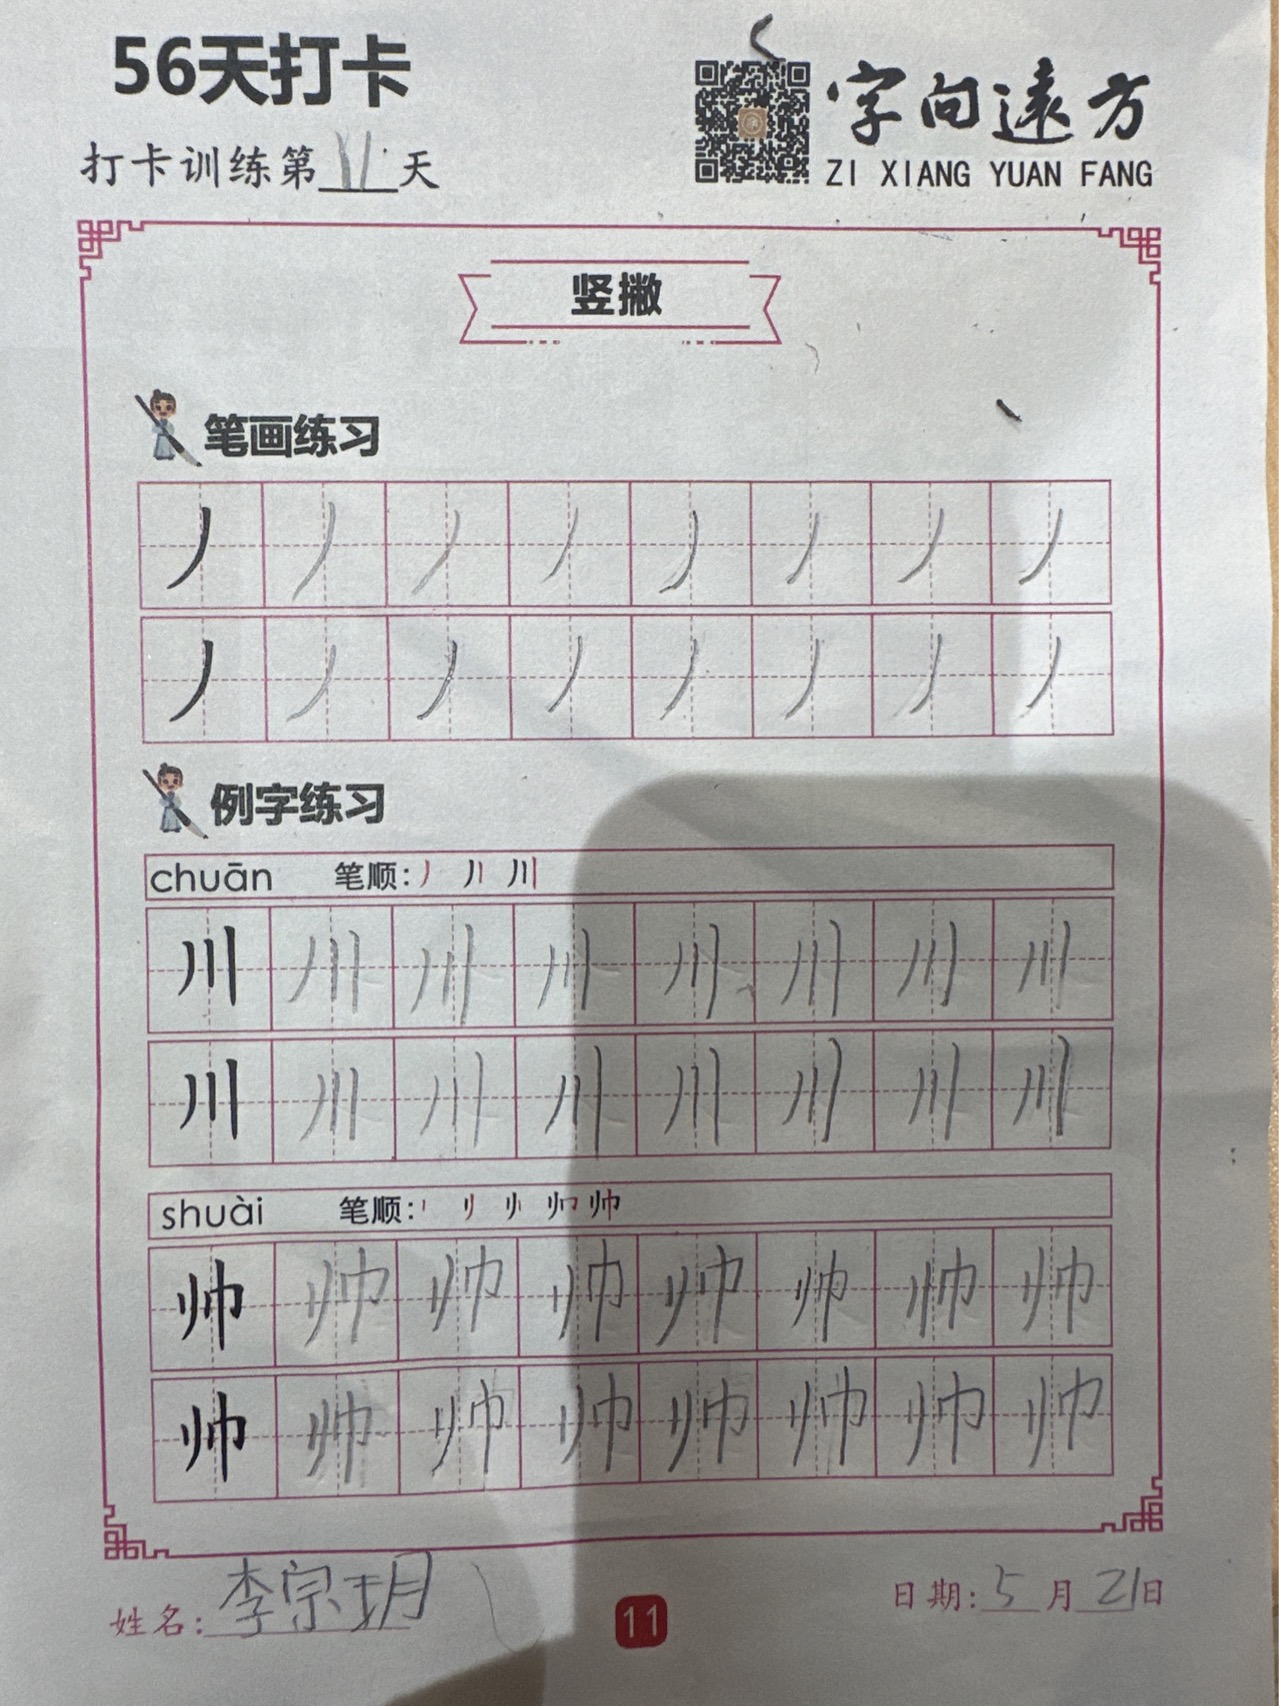 56天打卡
打卡训练第11天
字向遠方
ZI XIANG YUAN FANG
竖撇
笔画练习
丿 丿 丿 丿 丿 丿 丿 丿
丿 丿 丿 丿 丿 丿 丿 丿
例字练习
chuān 笔顺: 丿 丿丨 川
川 川 川 川 川 川 川 川
川 川 川 川 川 川 川 川
shuài 笔顺: 帅
帅 帅 帅 帅 帅 帅 帅 帅
帅 帅 帅 帅 帅 帅 帅 帅
姓名: 李宗玥
11
日期: 5月21日